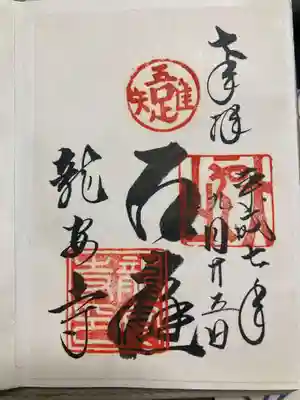 奉拝
平成廿七年
九月廿五日
吾唯足知
石庭
龍安寺